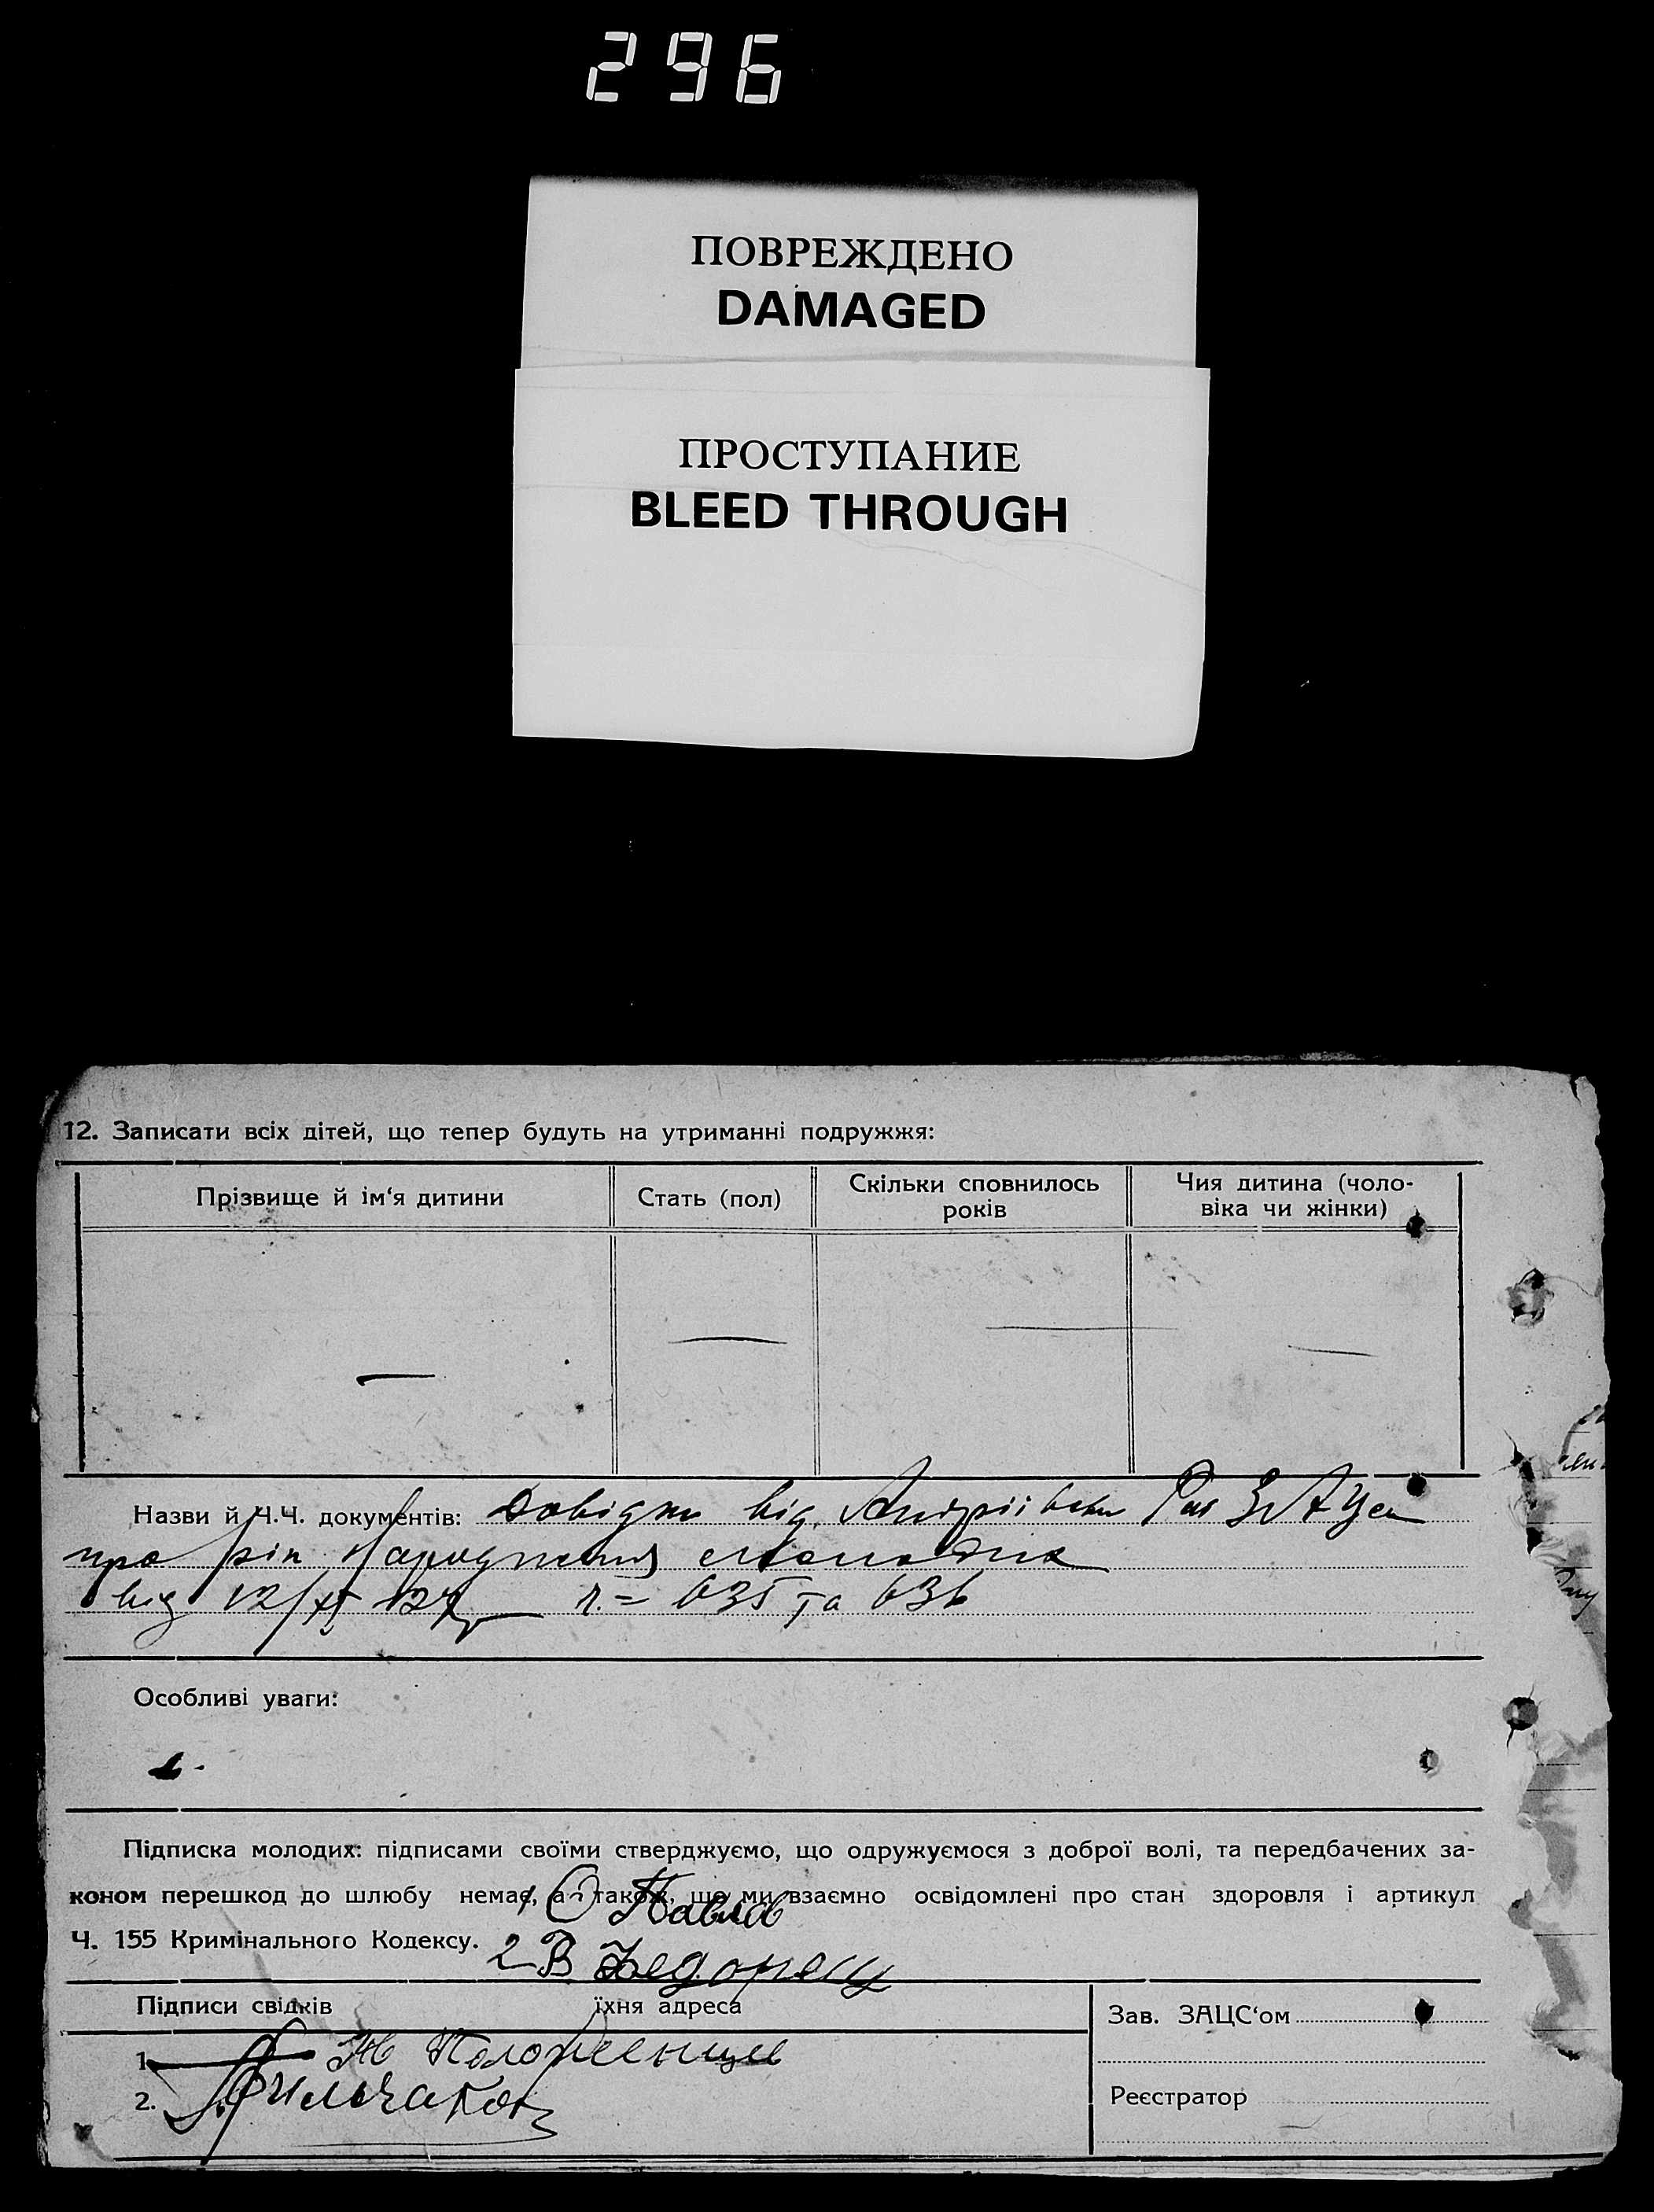 296
ПОВРЕЖДЕНО
DAMAGED
ПРОСТУПАНИЕ
BLEED THROUGH
12. Записати всіх дітей, що тепер будуть на утриманні подружжя:
Прізвище й ім'я дитини
Стать (пол)
Скільки сповнилось
років
Чия дитина (чоло-
віка чи жінки)
Назви й Ч.Ч. документів: Довідки від
про рік народження
від 12/XI 127 635 та 636
Особливі уваги:
Підписка молодих: підписами своїми стверджуємо, що одружуємося з доброї волі, та передбачених за-
коном перешкод до шлюбу немає, а також, що ми взаємно освідомлені про стан здоровля і артикул
1 О Павлов
Ч. 155 Кримінального Кодексу.
2 В Федорец
Підписи свідків
їхня адреса
1.
2.
Зав. ЗАЦС'ом
Реєстратор